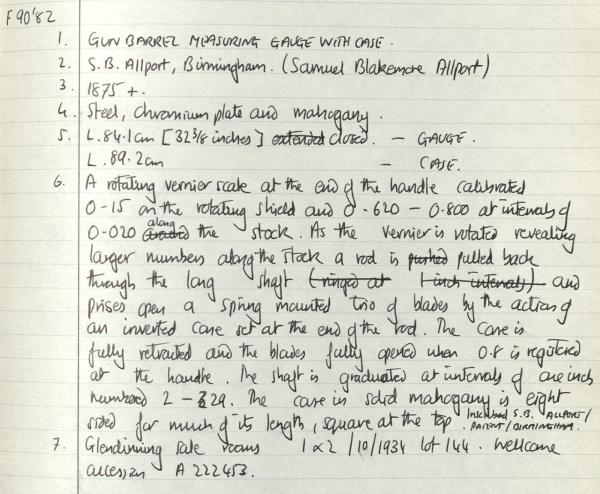 F 90'82
1. GUN BARREL MEASURING GAUGE WITH CASE.
2. S.B. Allport, Birmingham. (Samuel Blakemore Allport)
3. 1875 +.
4. Steel, chromium plate and mahogany.
5. L. 84.1cm [32 3/8 inches] extended closed. — GAUGE.
L. 89.2cm — CASE.
6. A rotating vernier scale at the end of the handle calibrated
0-15 on the rotating shield and 0.620 - 0.800 at intervals of
0.020 along the stock. As the vernier is rotated revealing
larger numbers along the stock a rod is pushed pulled back
through the long shaft (ringed at 1 inch intervals) and
prises open a spring mounted trio of blades by the action of
an inverted cone set at the end of the rod. The cone is
fully retracted and the blades fully opened when 0.8 is registered
at the handle. The shaft is graduated at intervals of one inch
numbered 2 - 29. The case in solid mahogany is eight
sided for much of its length, square at the top. Inscribed S.B. ALLPORT/
PATENT/BIRMINGHAM.
7. Glendining sale rooms 1 & 2 /10/1934 lot 144. Wellcome
accession A 222453.